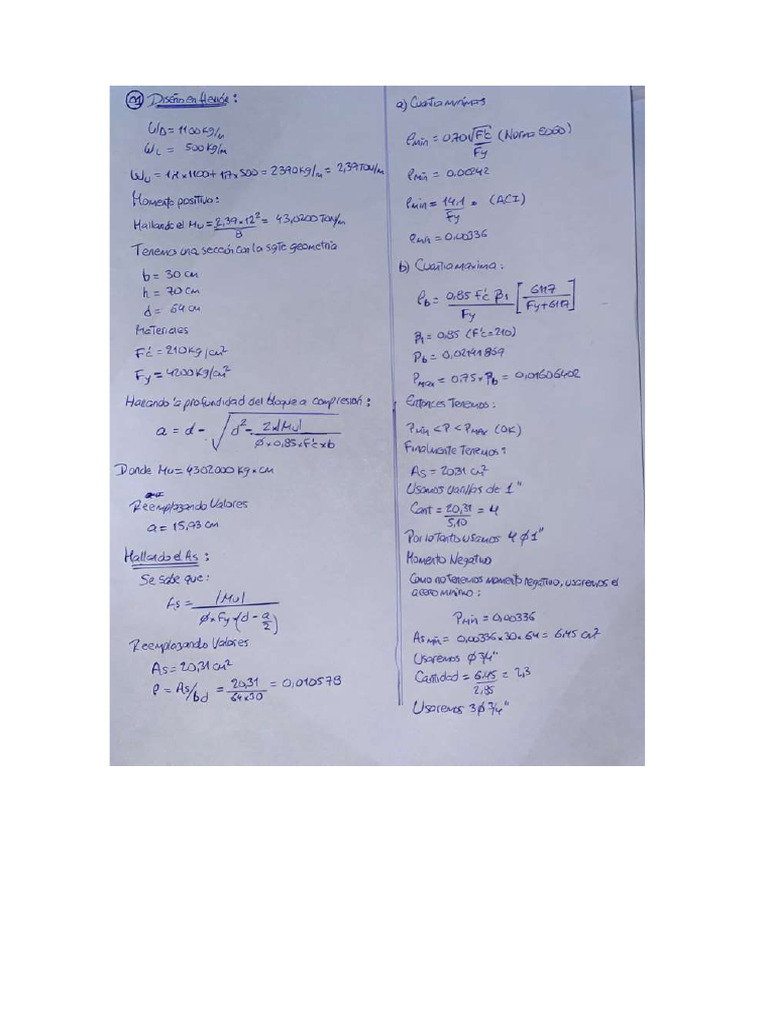 01 Diseño en flexión:
WD = 1100 kg/m
WL = 500 kg/m
WU = 1.4 x 1100 + 1.7 x 500 = 2390 kg/m = 2,39 TON/m
Momento positivo:
Hallando el Mu = 2,39 x 12² / 8 = 43,0200 TON/m
Tenemos una sección con la sgte geometria
b = 30 cm
h = 70 cm
d = 64 cm
Materiales
F'c = 210 kg/cm²
Fy = 4200 kg/cm²
Hallando la profundidad del bloque a compresión:
a = d - √(d² - 2x|Mu| / (φ x 0,85 x F'c x b))
Donde Mu = 4302000 kg x cm
Reemplazando Valores
a = 15,73 cm
Hallando el As:
Se sabe que:
As = |Mu| / (φ x Fy x (d - a/2))
Reemplazando Valores
As = 20,31 cm²
ρ = As/bd = 20,31 / 64x30 = 0,010578
a) Cuantia minimas
ρmin = 0,70√F'c / Fy (Norma E060)
ρmin = 0.00242
ρmin = 14.1 / Fy = (ACI)
ρmin = 0,00336
b) Cuantia maxima:
ρb = 0,85 F'c β1 / Fy [6117 / Fy+6117]
β1 = 0,85 (F'c=210)
ρb = 0,02141869
ρmax = 0.75 x ρb = 0,01606402
Entonces Tenemos:
ρmin < ρ < ρmax (OK)
Finalmente Tenemos:
As = 20,31 cm²
Usamos varillas de 1"
Cant = 20,31 / 5,10 = 4
Por lo Tanto usamos 4 φ 1"
Momento Negativo
Como no Tenemos momento negativo, usaremos el
acero minimo:
ρmin = 0,00336
Asmin = 0,00336 x 30 x 64 = 6.45 cm²
Usaremos φ 3/4"
Cantidad = 6.45 / 2,85 = 2,3
Usaremos 3 φ 3/4"